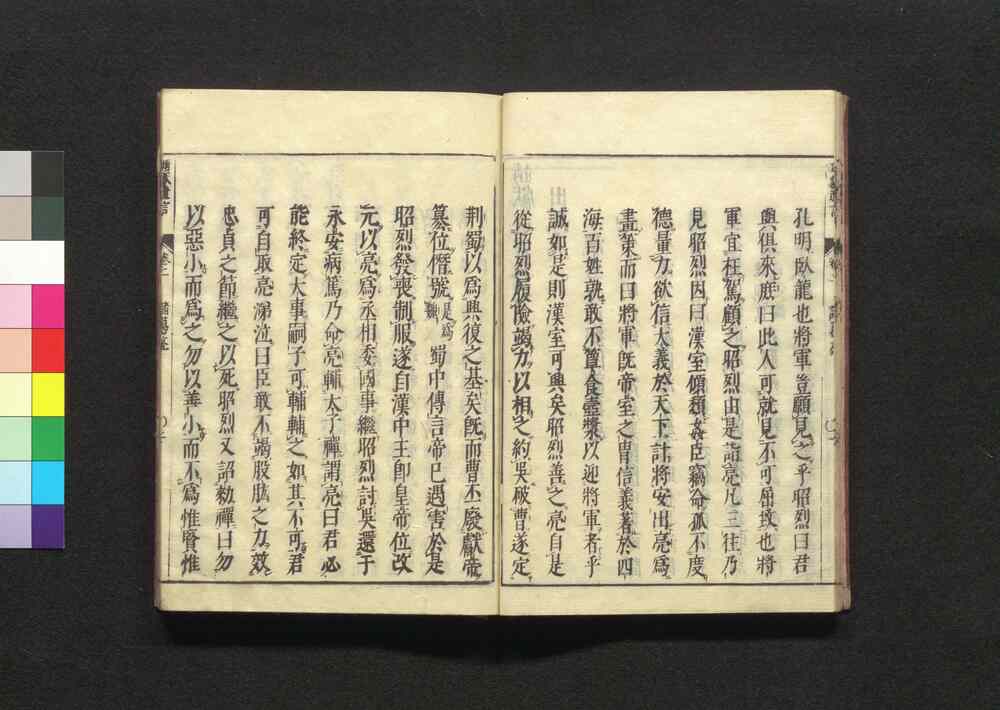 孔明臥龍也將軍豈願見之乎昭烈曰君
與俱來庶曰此人可就見不可屈致也將
軍宜枉駕顧之昭烈由是詣亮凡三往乃
見昭烈因曰漢室傾頽姦臣竊命孤不度
德量力欲信大義於天下計將安出亮爲
畫策而曰將軍旣帝室之冑信義著於四
海百姓孰敢不簞食壺漿以迎將軍者乎
誠如是則漢室可興矣昭烈善之亮自是
從昭烈履險竭力以相之約吳破曹遂定
荆蜀以爲興復之基矣旣而曹丕廢獻帝
簒位僭號是爲魏蜀中傳言帝已遇害於是
昭烈發喪制服遂自漢中王卽皇帝位改
元以亮爲丞相委國事繼昭烈討吳還于
永安病篤乃命亮輔太子禪謂亮曰君必
能終定大事嗣子可輔輔之如其不可君
可自取亮涕泣曰臣敢不竭股肱之力效
忠貞之節繼之以死昭烈又詔勅禪曰勿
以惡小而爲之勿以善小而不爲惟賢惟
卷之一
諸葛亮